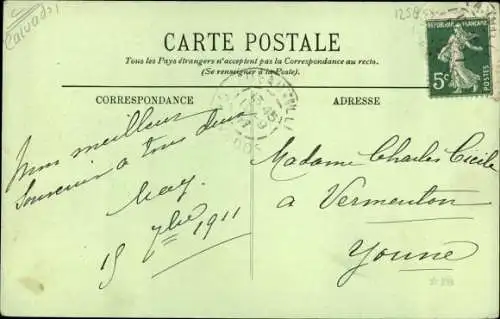 Calvados
CARTE POSTALE
Tous les Pays étrangers n'acceptent pas la Correspondance au recto.
(Se renseigner à la Poste).
CORRESPONDANCE
ADRESSE
RÉPUBLIQUE FRANÇAISE
5c
POSTES
Mon meilleur
Souvenir à tous deux
May
15 7bre 1911
Madame Charles Cicile
à Vermenton
Yonne